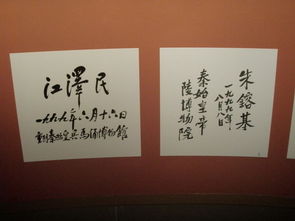 江澤民
一九九九年六月十六日
秦始皇兵馬俑博物館
朱鎔基
一九九九年、
八月八日
秦始皇帝
陵博物院